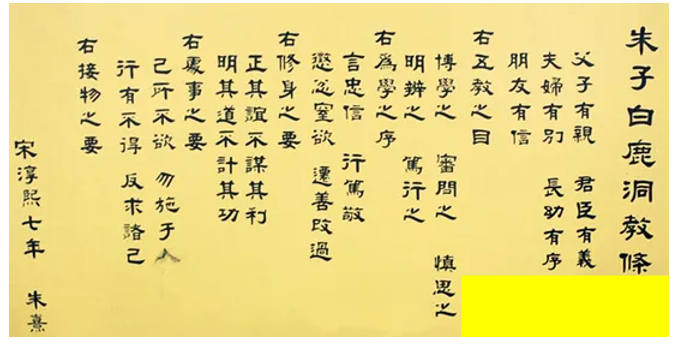 朱子白鹿洞教條
父子有親 君臣有義
夫婦有別 長幼有序
朋友有信
右五教之目
博學之 審問之 慎思之
明辨之 篤行之
右爲學之序
言忠信 行篤敬
懲忿窒欲 遷善改過
右修身之要
正其誼不謀其利
明其道不計其功
右處事之要
己所不欲 勿施于人
行有不得 反求諸己
右接物之要
宋淳熙七年 朱熹